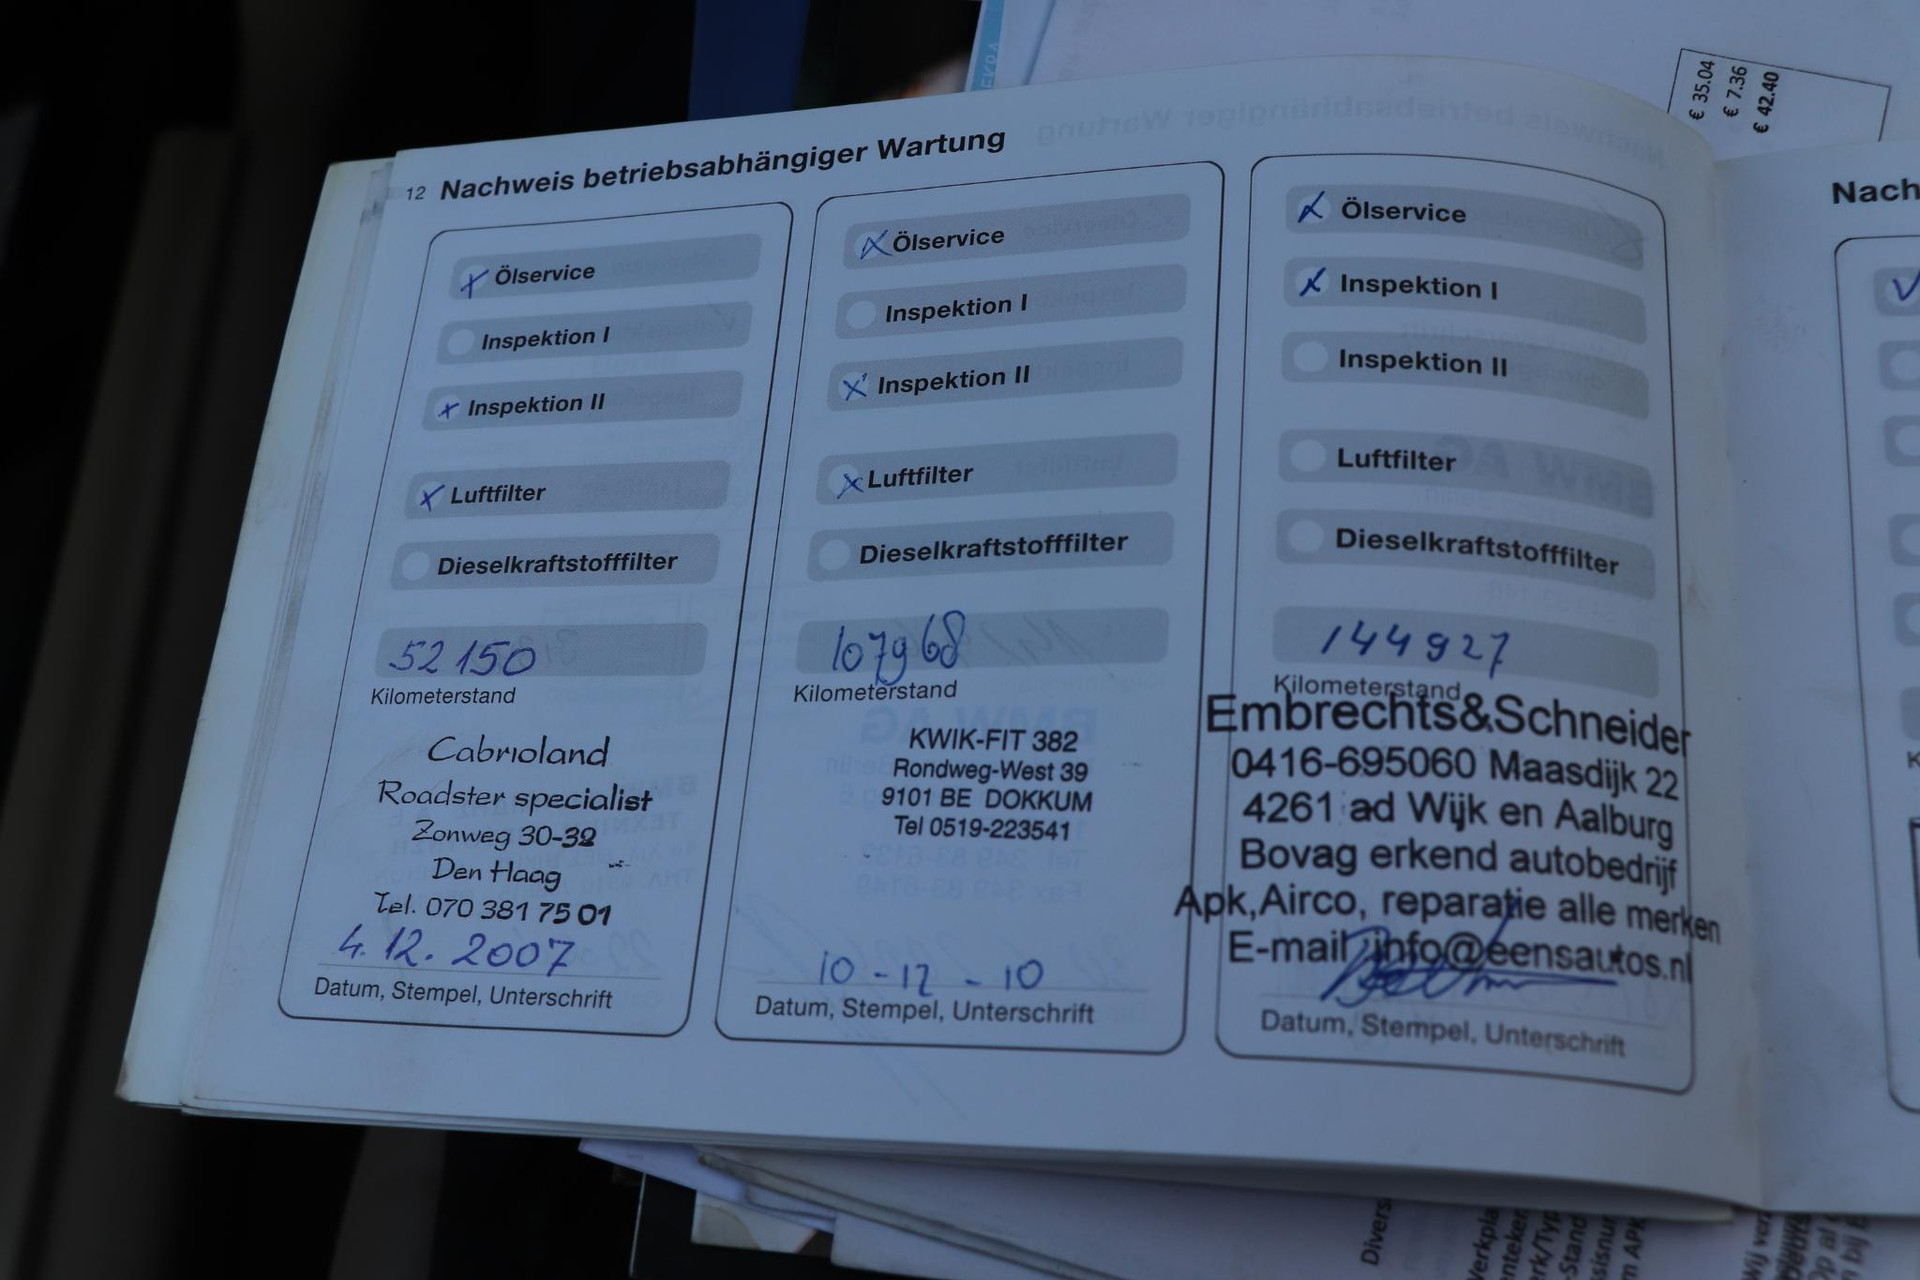 12 Nachweis betriebsabhängiger Wartung
Ölservice
Inspektion I
Inspektion II
Luftfilter
Dieselkraftstofffilter
52 150
Kilometerstand
Cabrioland
Roadster specialist
Zonweg 30-32
Den Haag
Tel. 070 381 75 01
4.12.2007
Datum, Stempel, Unterschrift
Ölservice
Inspektion I
Inspektion II
Luftfilter
Dieselkraftstofffilter
107968
Kilometerstand
KWIK-FIT 382
Rondweg-West 39
9101 BE DOKKUM
Tel 0519-223541
10-12-10
Datum, Stempel, Unterschrift
Ölservice
Inspektion I
Inspektion II
Luftfilter
Dieselkraftstofffilter
144927
Kilometerstand
Embrechts&Schneider
0416-695060 Maasdijk 22
4261 ad Wijk en Aalburg
Bovag erkend autobedrijf
Apk,Airco, reparatie alle merken
E-mail info@eensautos.nl
Datum, Stempel, Unterschrift
Nach
€ 35.04
€ 7.36
€ 42.40
Divers